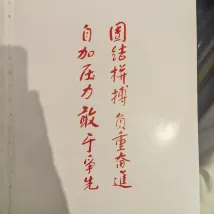 团结拼搏负重奋進
自加压力敢于争先